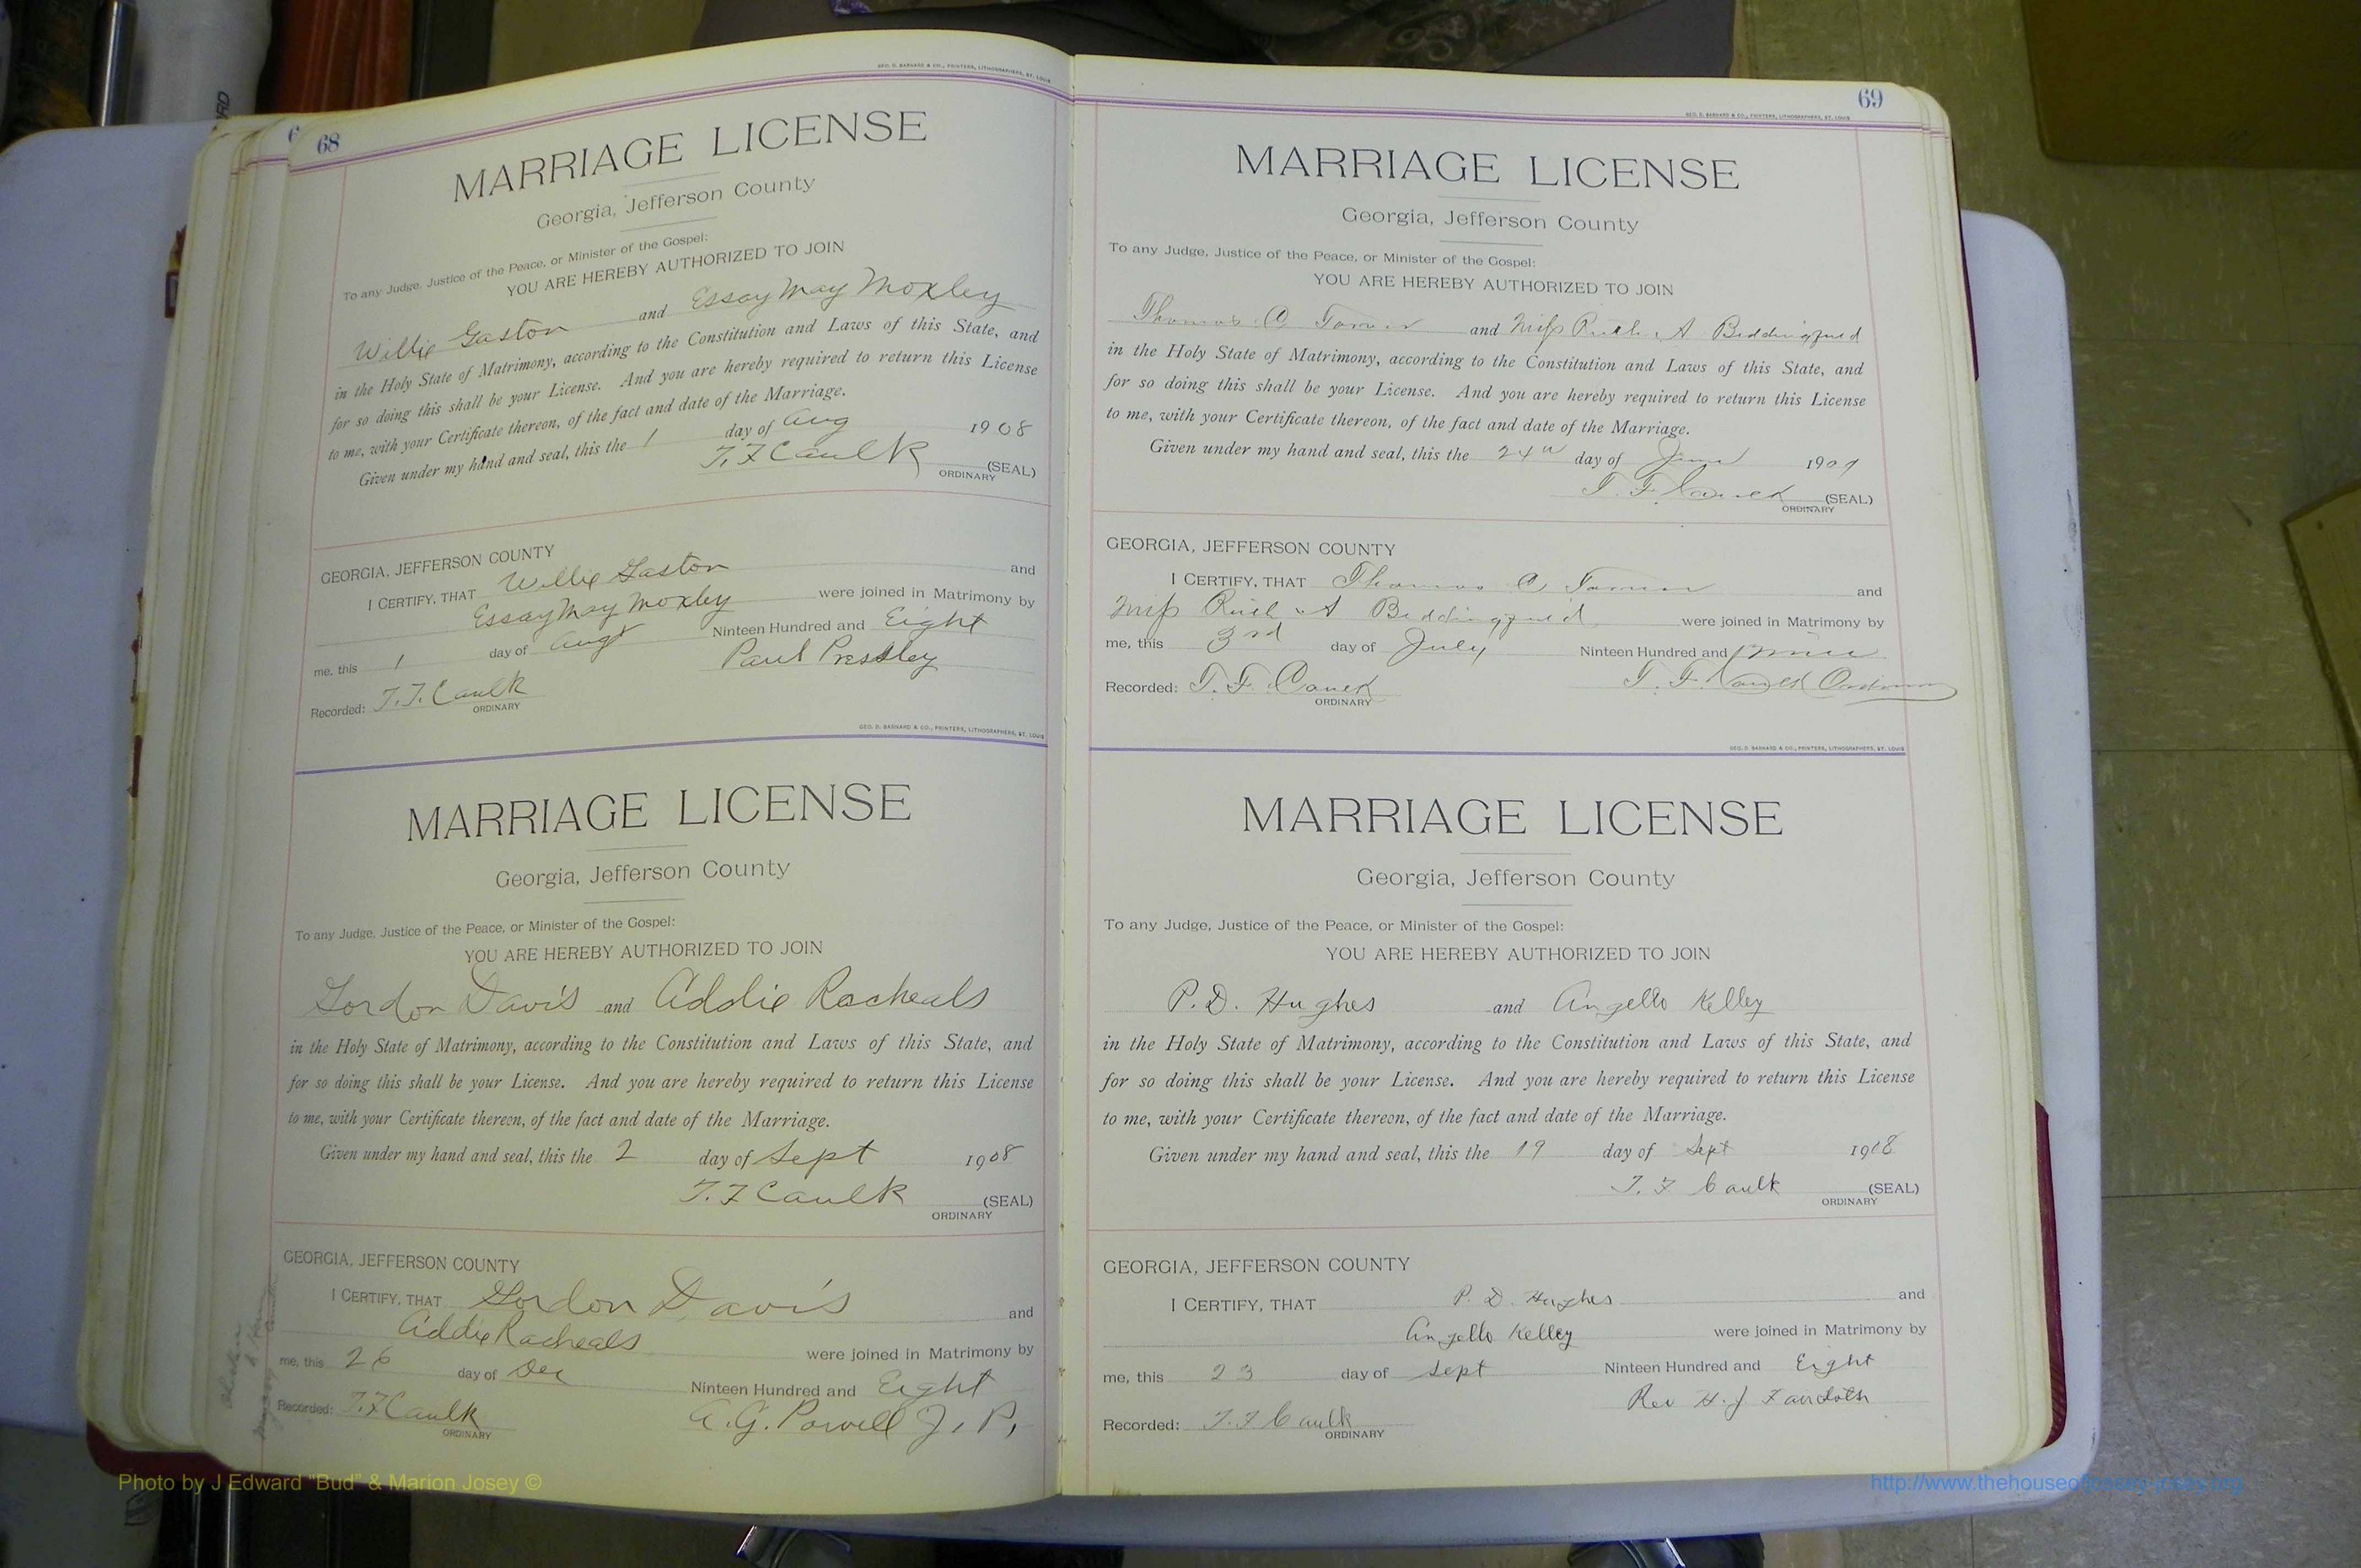 68
GEO. D. BARNARD & CO., PRINTERS, LITHOGRAPHERS, ST. LOUIS
MARRIAGE LICENSE
Georgia, Jefferson County
To any Judge, Justice of the Peace, or Minister of the Gospel:
YOU ARE HEREBY AUTHORIZED TO JOIN
Willie Gaston and Essay May Moxley
in the Holy State of Matrimony, according to the Constitution and Laws of this State, and
for so doing this shall be your License. And you are hereby required to return this License
to me, with your Certificate thereon, of the fact and date of the Marriage.
Given under my hand and seal, this the 1 day of Aug 1908
T. F. Caulk (SEAL)
ORDINARY
GEORGIA, JEFFERSON COUNTY
I CERTIFY, THAT Willie Gaston and
Essay May Moxley were joined in Matrimony by
me, this 1 day of Augt Ninteen Hundred and Eight
Paul Pressley
Recorded: T. F. Caulk
ORDINARY
GEO. D. BARNARD & CO., PRINTERS, LITHOGRAPHERS, ST. LOUIS
MARRIAGE LICENSE
Georgia, Jefferson County
To any Judge, Justice of the Peace, or Minister of the Gospel:
YOU ARE HEREBY AUTHORIZED TO JOIN
Gordon Davis and Addie Racheals
in the Holy State of Matrimony, according to the Constitution and Laws of this State, and
for so doing this shall be your License. And you are hereby required to return this License
to me, with your Certificate thereon, of the fact and date of the Marriage.
Given under my hand and seal, this the 2 day of Sept 1908
T. F. Caulk (SEAL)
ORDINARY
GEORGIA, JEFFERSON COUNTY
I CERTIFY, THAT Gordon Davis and
Addie Racheals were joined in Matrimony by
me, this 26 day of Dec Ninteen Hundred and Eight
A. G. Powell J. P.
Recorded: T. F. Caulk
ORDINARY
69
GEO. D. BARNARD & CO., PRINTERS, LITHOGRAPHERS, ST. LOUIS
MARRIAGE LICENSE
Georgia, Jefferson County
To any Judge, Justice of the Peace, or Minister of the Gospel:
YOU ARE HEREBY AUTHORIZED TO JOIN
Thomas and Miss Ruth A Beddingfield
in the Holy State of Matrimony, according to the Constitution and Laws of this State, and
for so doing this shall be your License. And you are hereby required to return this License
to me, with your Certificate thereon, of the fact and date of the Marriage.
Given under my hand and seal, this the 24th day of June 1909
T. F. Caulk (SEAL)
ORDINARY
GEORGIA, JEFFERSON COUNTY
I CERTIFY, THAT Thomas and
Miss Ruth A Beddingfield were joined in Matrimony by
me, this 3rd day of July Ninteen Hundred and Nine
T. F. Caulk Ordinary
Recorded: T. F. Caulk
ORDINARY
GEO. D. BARNARD & CO., PRINTERS, LITHOGRAPHERS, ST. LOUIS
MARRIAGE LICENSE
Georgia, Jefferson County
To any Judge, Justice of the Peace, or Minister of the Gospel:
YOU ARE HEREBY AUTHORIZED TO JOIN
P. D. Hughes and Angello Kelley
in the Holy State of Matrimony, according to the Constitution and Laws of this State, and
for so doing this shall be your License. And you are hereby required to return this License
to me, with your Certificate thereon, of the fact and date of the Marriage.
Given under my hand and seal, this the 19 day of Sept 1908
T. F. Caulk (SEAL)
ORDINARY
GEORGIA, JEFFERSON COUNTY
I CERTIFY, THAT P. D. Hughes and
Angello Kelley were joined in Matrimony by
me, this 23 day of Sept Ninteen Hundred and Eight
Rev H. J.
Recorded: T. F. Caulk
ORDINARY
Photo by J Edward "Bud" & Marion Josey ©